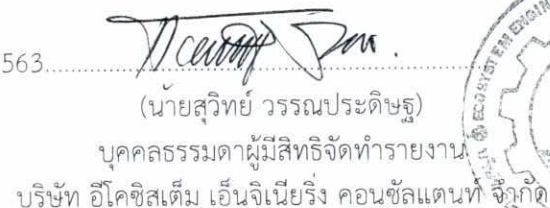 563....................
(นายสุวิทย์ วรรณประดิษฐ)
บุคคลธรรมดาผู้มีสิทธิจัดทำรายงาน
บริษัท อีโคซิสเต็ม เอ็นจิเนียริ่ง คอนซัลแตนท์ จำกัด